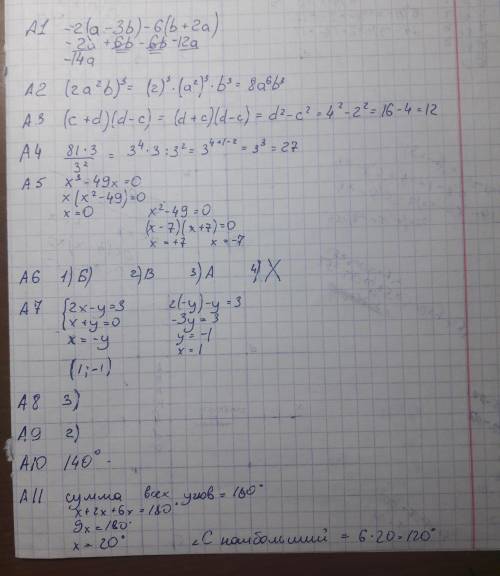 А1 -2(a-3b)-6(b+2a)
-2a+6b-6b-12a
-14a
А2 (2a²b)³ = (2)³·(a²)³·b³ = 8a⁶b³
А3 (c+d)(d-c) = (d+c)(d-c) = d²-c² = 4²-2² = 16-4=12
А4 81·3/3² = 3⁴·3:3² = 3⁴⁺¹⁻² = 3³ = 27
А5 x³-49x=0
x(x²-49)=0
x=0 x²-49=0
(x-7)(x+7)=0
x=+7 x=-7
А6 1) Б) 2) В 3) А 4) X
А7 {2x-y=3 2(-y)-y=3
x+y=0 -3y=3
x=-y y=-1
x=1
(1;-1)
А8 3)
А9 2)
А10 140°
А11 сумма всех углов = 180°
x+2x+6x=180°
9x=180°
x=20° ∠C наибольший = 6·20=120°